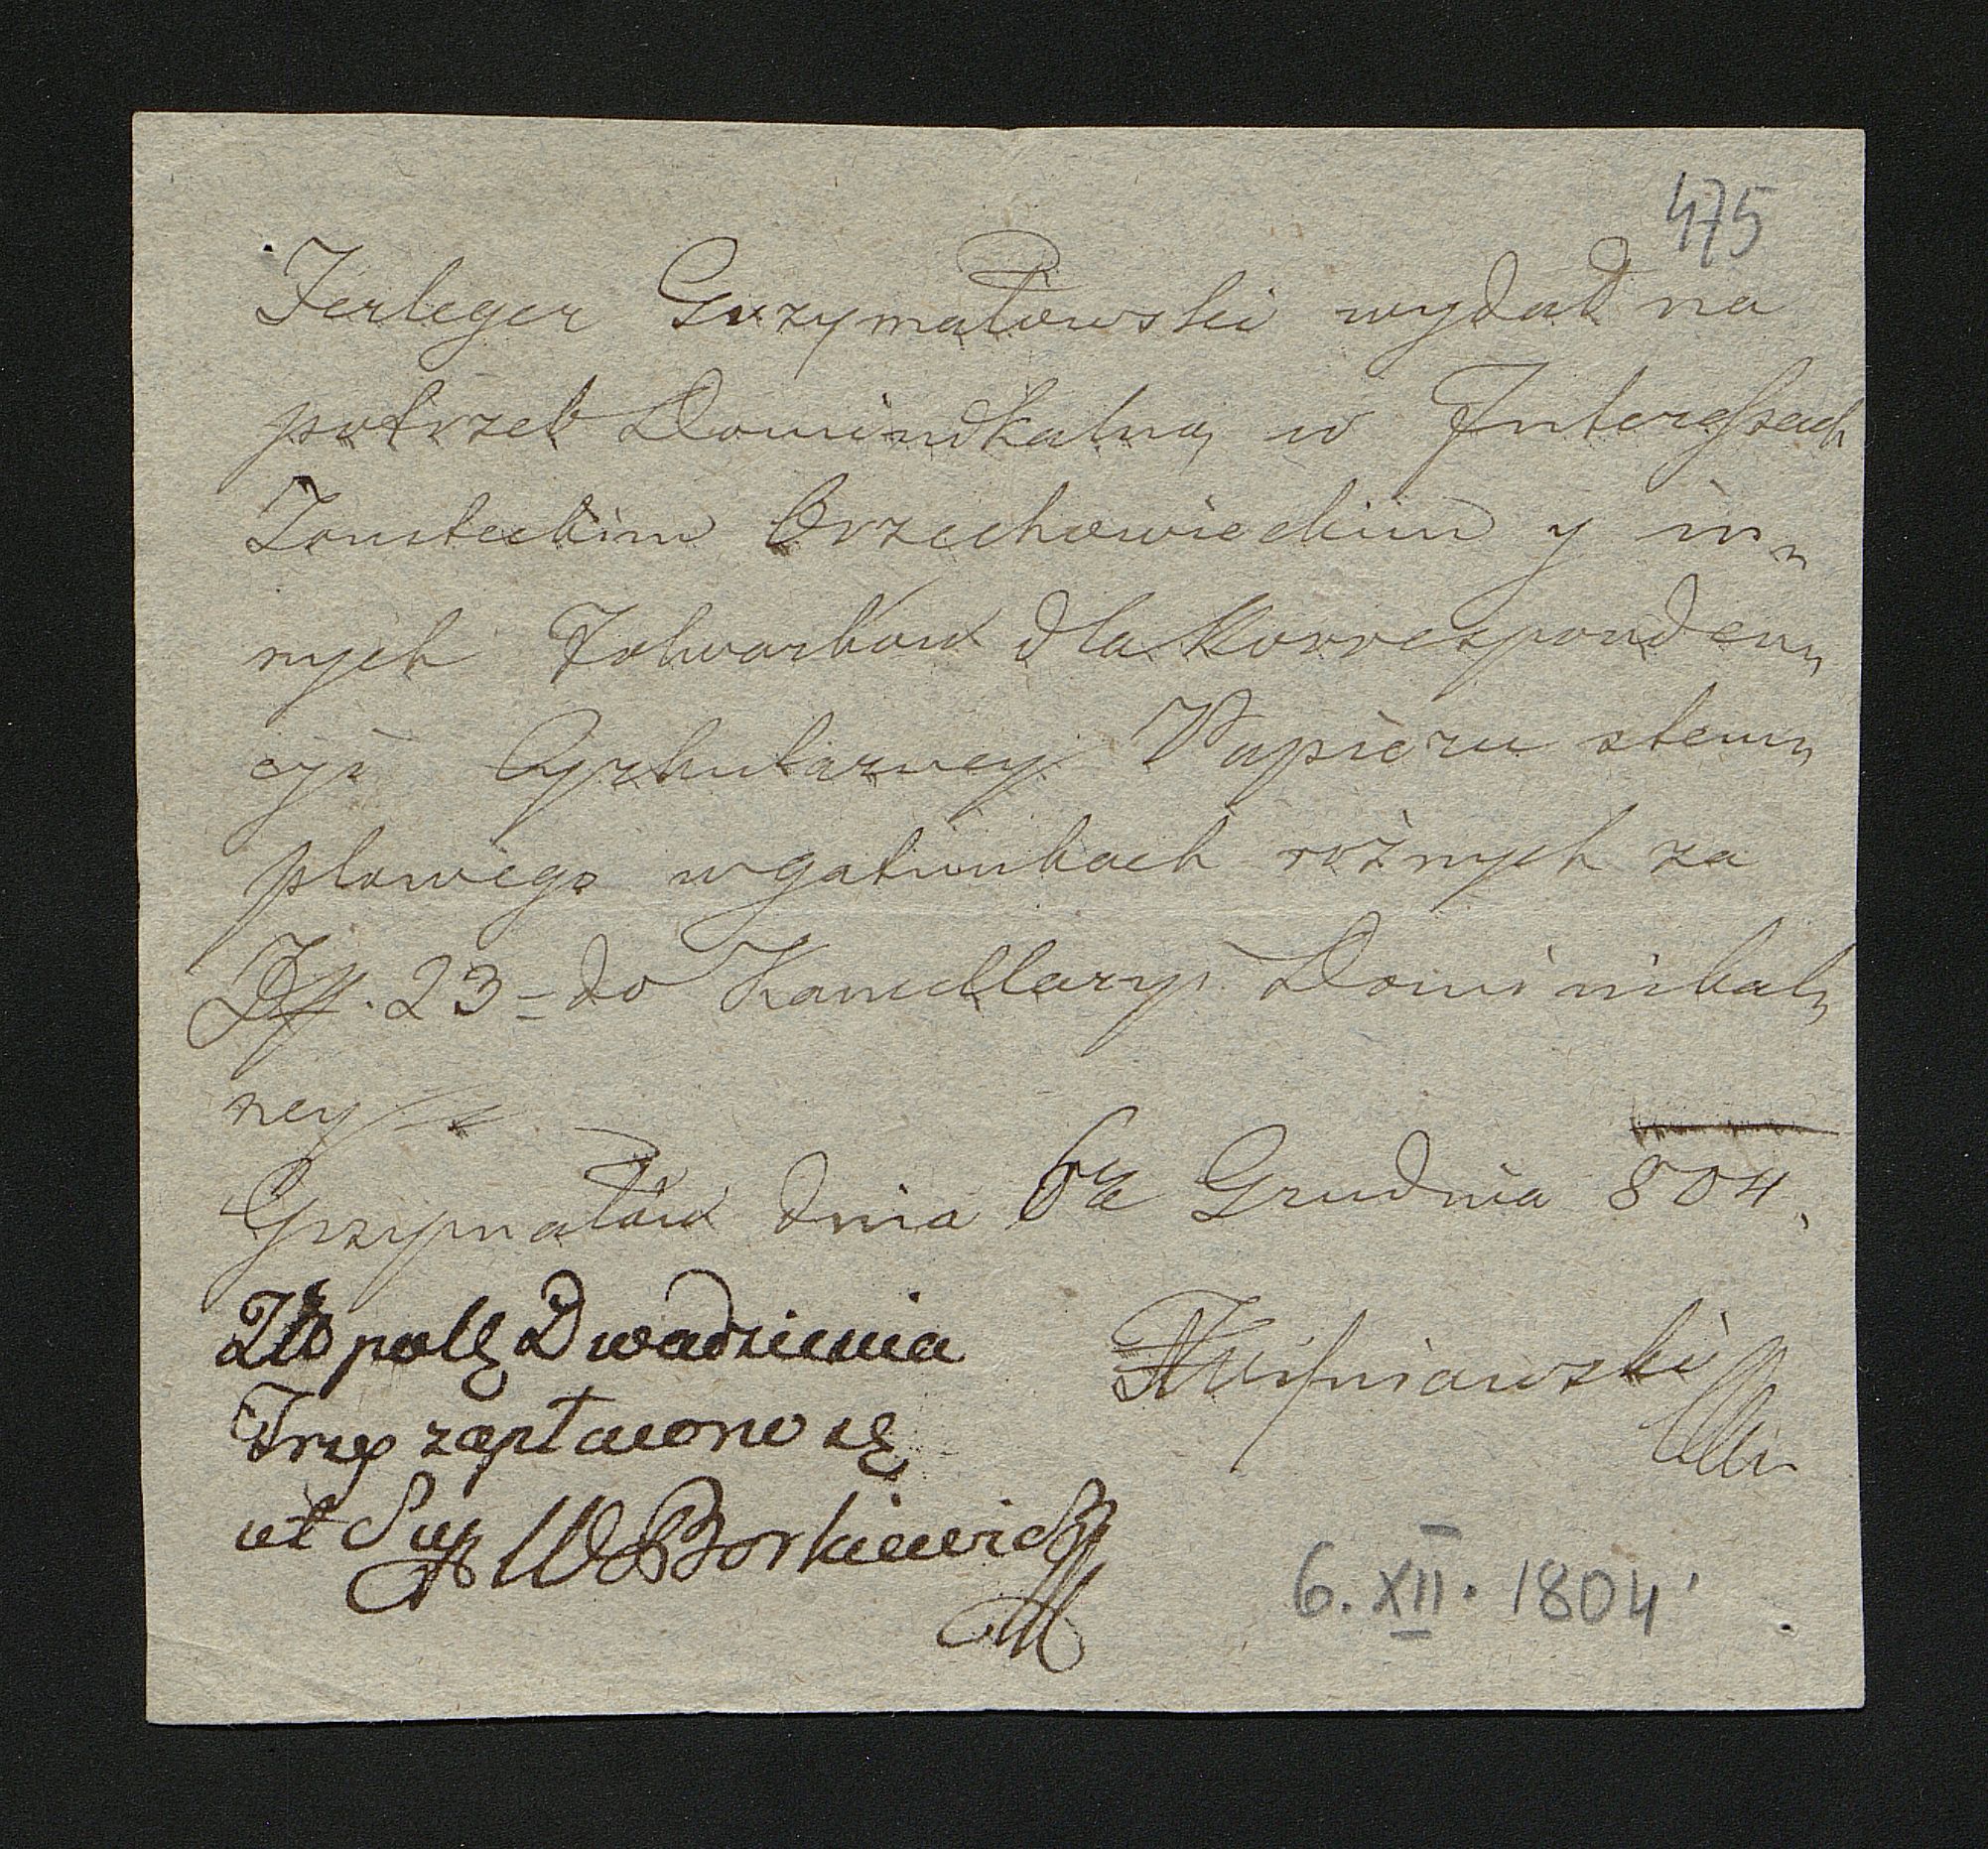 475
Ferleger Grzymałowski wydał na
potrzeb Dominikalną w Interessach
Orzechowieckim y in„
nych Folwarkow dla Korresponden„
cyi Cyrkularney Papieru stem„
plowego w gatunkach rożnych za
23 = do Kancellaryi Dominikal„
ney
Grzymałów dnia 6go Grudnia 804.
Zło polś Dwadziescia
Trzy zapłacono są
ut Sup W Borkiewicz
Wiśniowski
6. XII. 1804